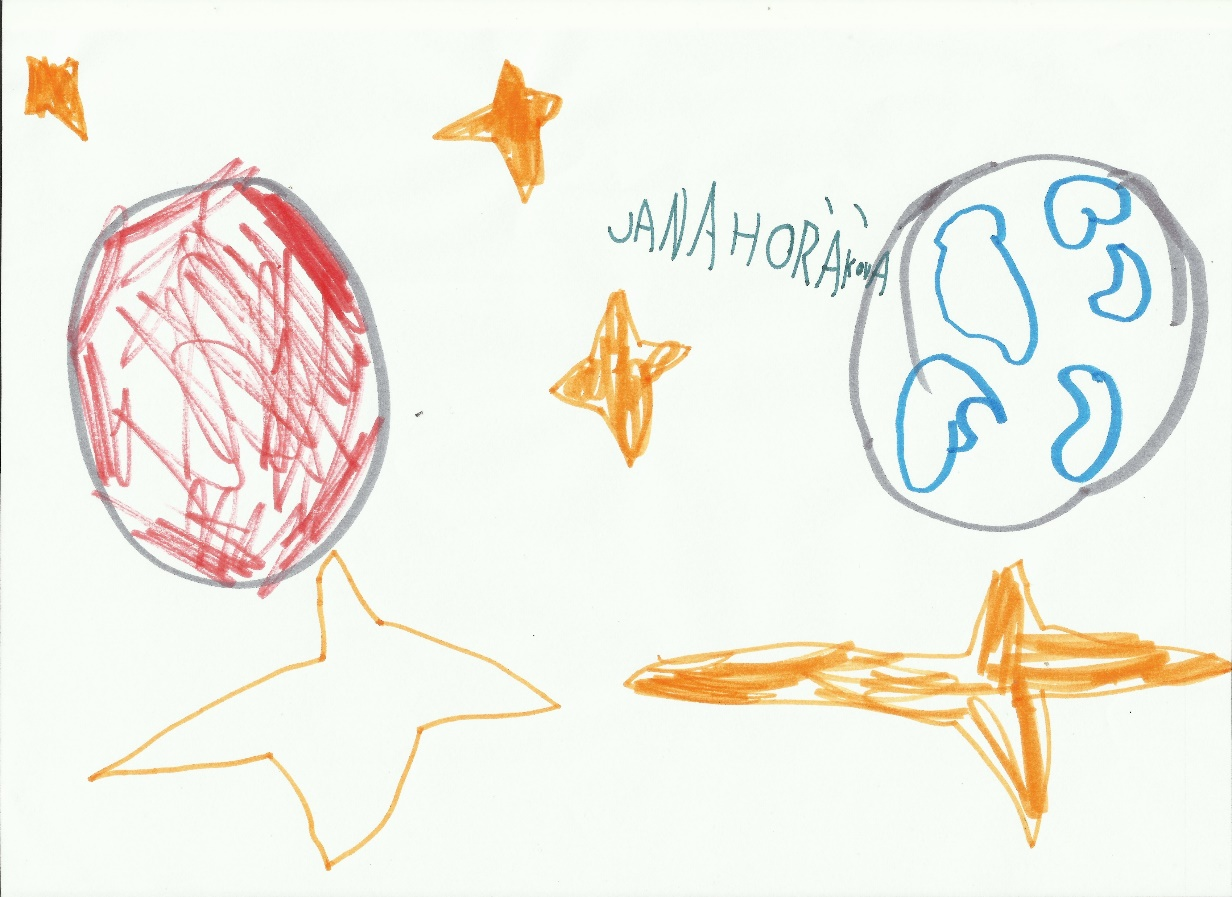 JANA HORÁKOVÁ